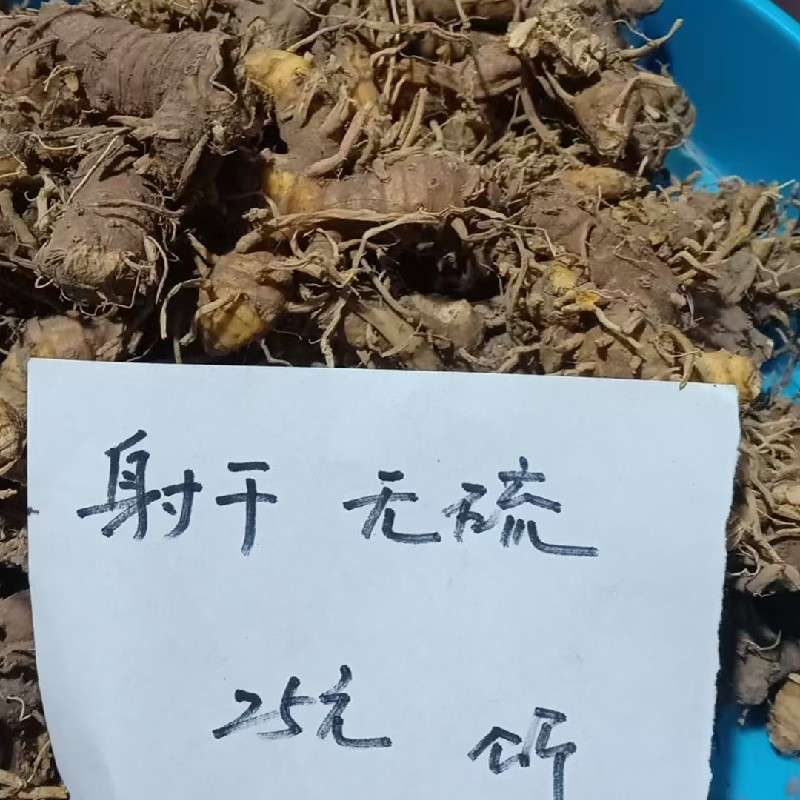 射干 无硫
25元 公斤